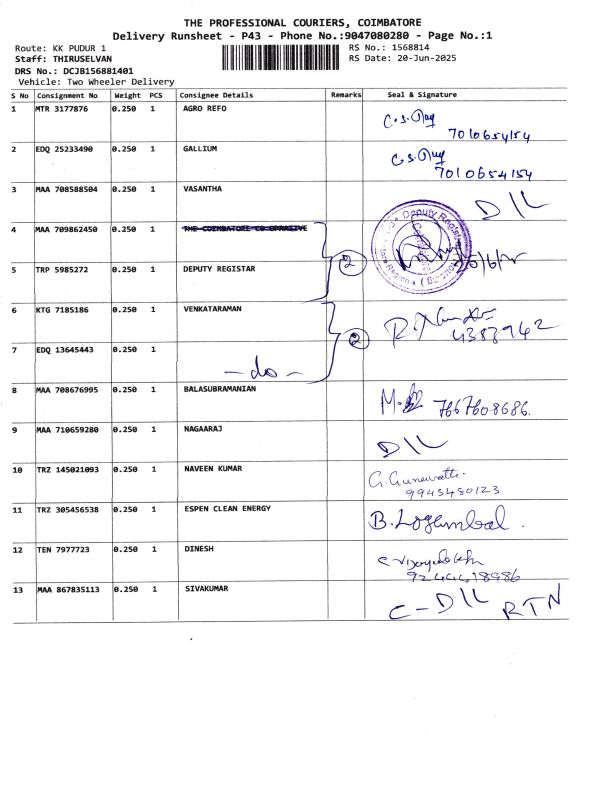 THE PROFESSIONAL COURIERS, COIMBATORE
Delivery Runsheet - P43 - Phone No.:9047080280 - Page No.:1
Route: KK PUDUR 1 RS No.: 1568814
Staff: THIRUSELVAN RS Date: 20-Jun-2025
DRS No.: DCJB156881401
Vehicle: Two Wheeler Delivery
S No Consignment No Weight PCS Consignee Details Remarks Seal & Signature
1 MTR 3177876 0.250 1 AGRO REFO
7010654154
2 EDQ 25233490 0.250 1 GALLIUM
7010654154
3 MAA 708588504 0.250 1 VASANTHA D/L
4 MAA 709862450 0.250 1 THE COIMBATORE CO OPRASIVE
Deputy Registrar
2
5 TRP 5985272 0.250 1 DEPUTY REGISTAR
6 KTG 7185186 0.250 1 VENKATARAMAN
4383942
2
7 EDQ 13645443 0.250 1
- do -
8 MAA 708676995 0.250 1 BALASUBRAMANIAN
7667608686.
9 MAA 710659280 0.250 1 NAGAARAJ D/L
10 TRZ 145021093 0.250 1 NAVEEN KUMAR
9943480123
11 TRZ 305456538 0.250 1 ESPEN CLEAN ENERGY B.Logambal.
12 TEN 7977723 0.250 1 DINESH
13 MAA 867835113 0.250 1 SIVAKUMAR C - D/L RTN